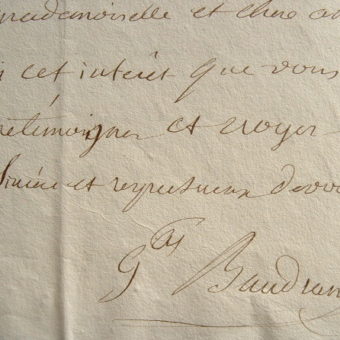 mademoiselle et chère a
cet intérêt que vous
témoigner et croyez
Sincère et respectueux devo
G^al Baudran